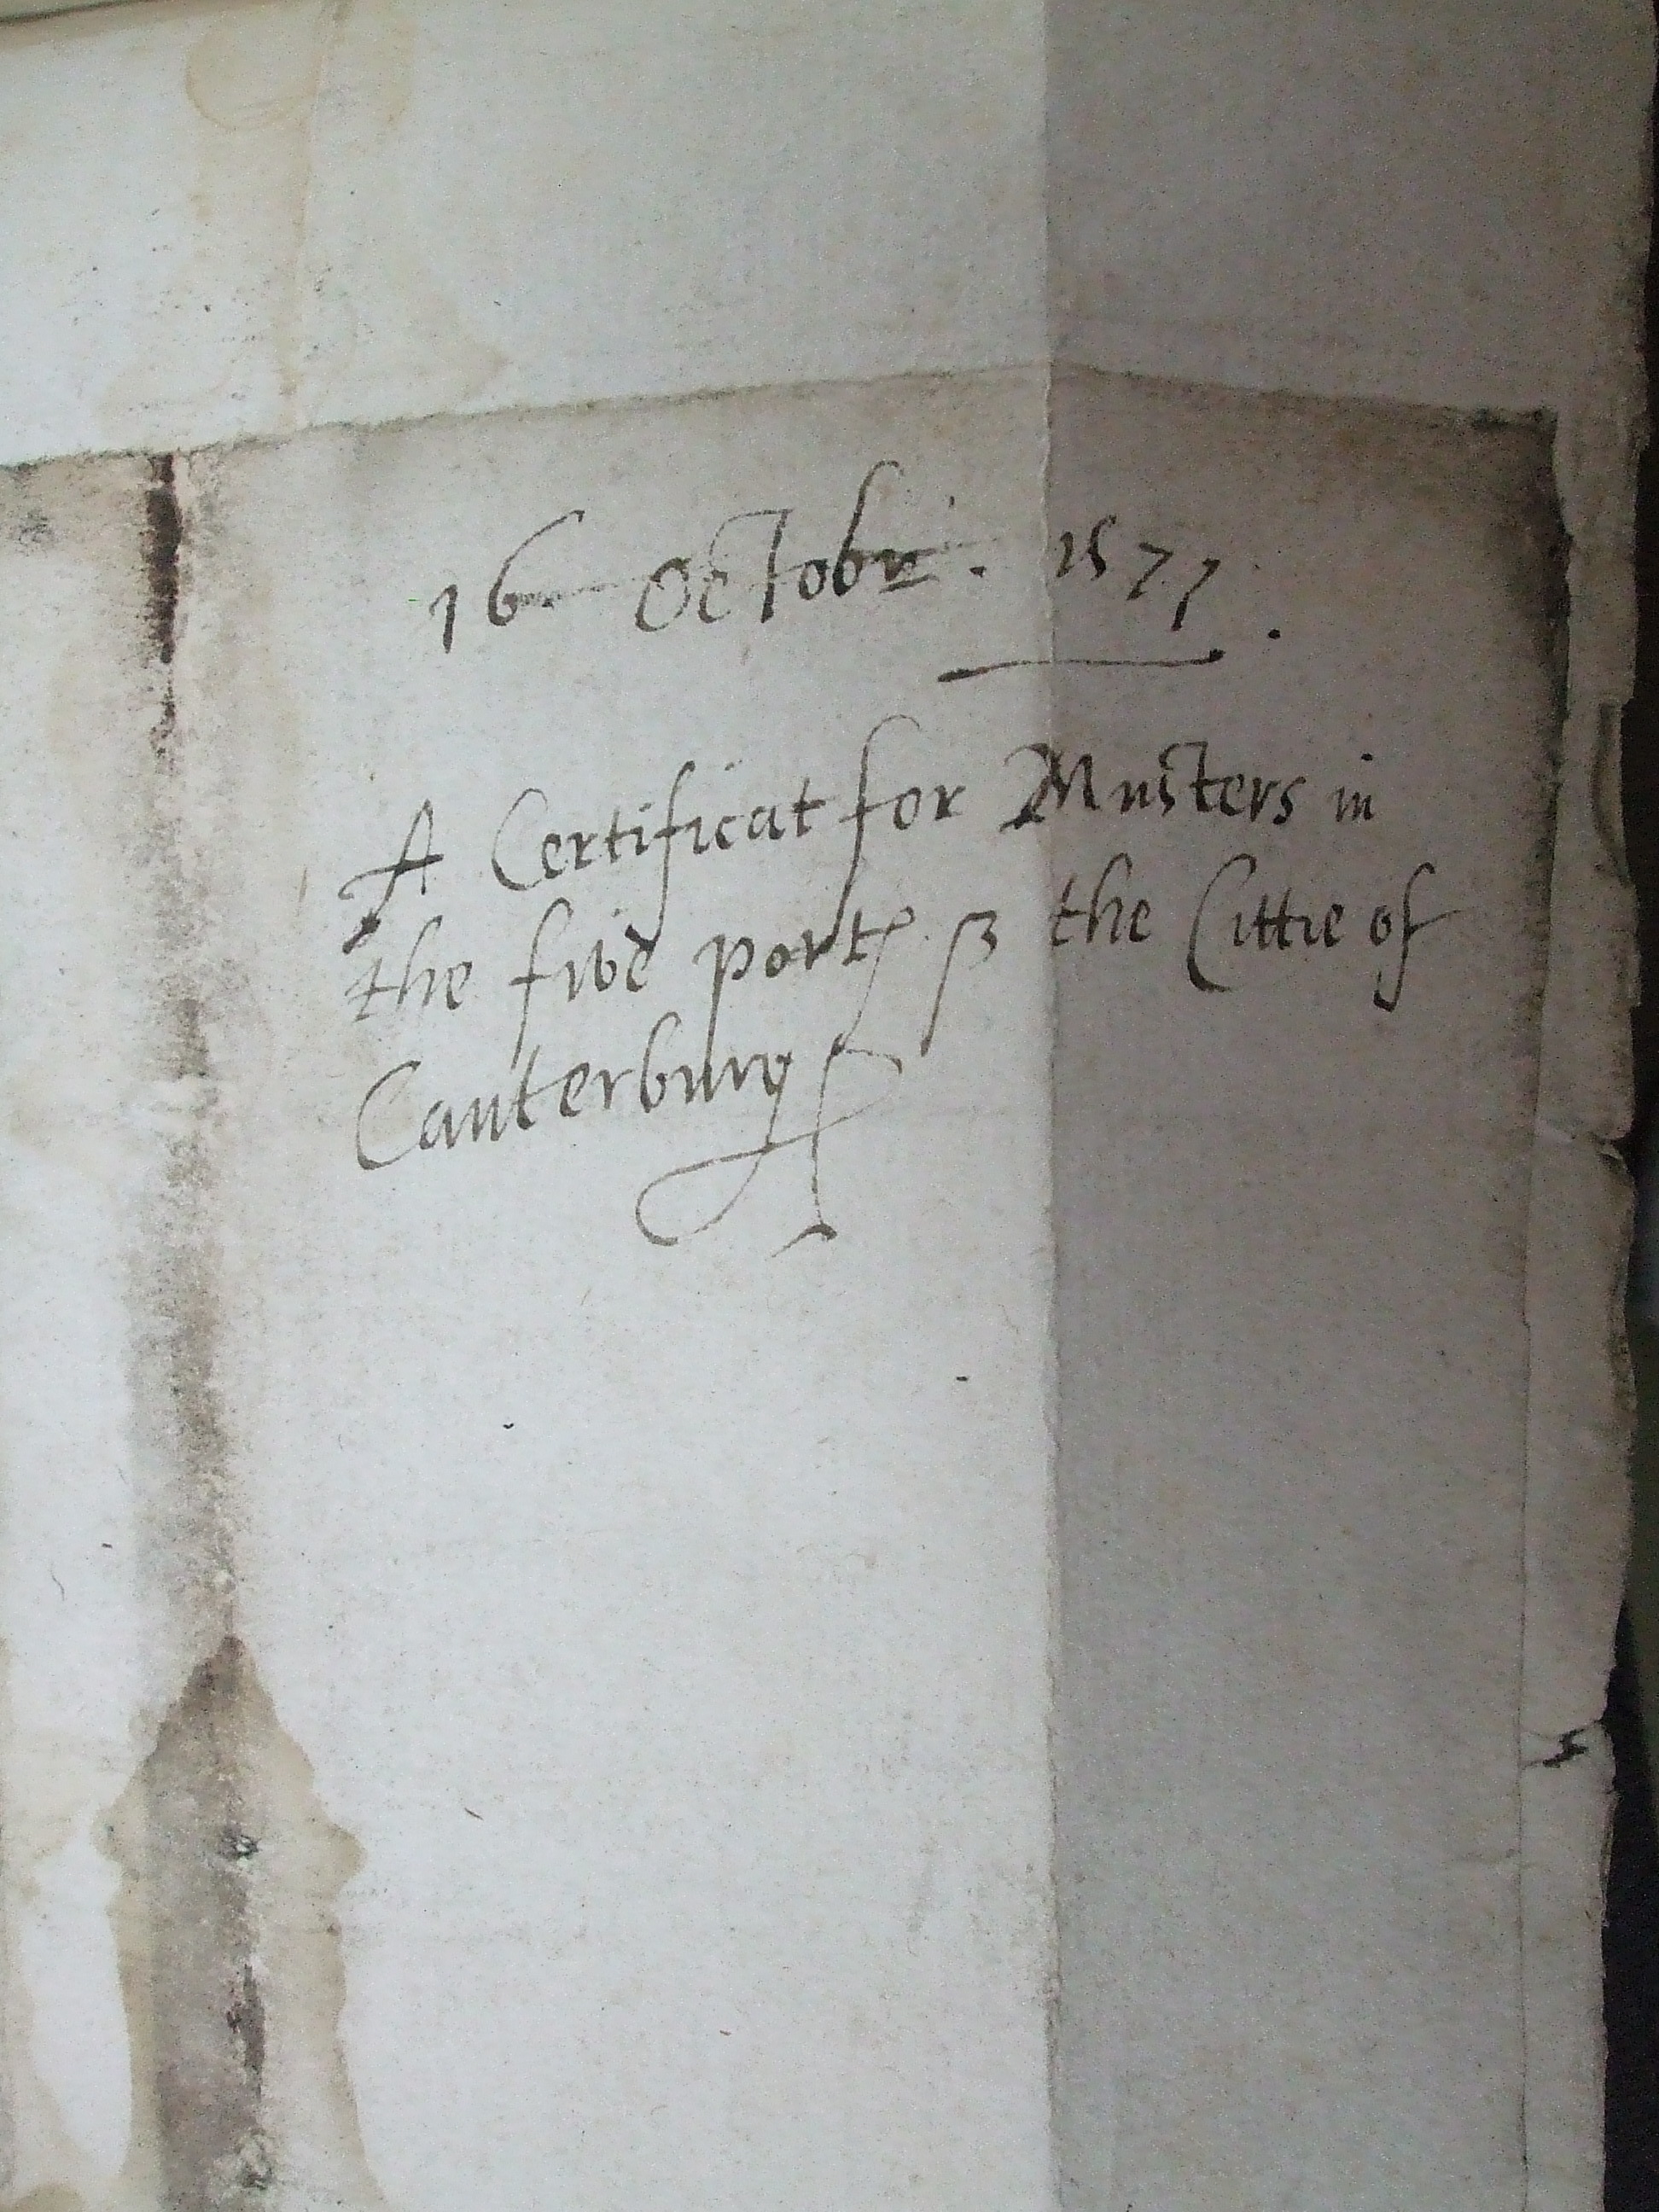 16 Octobr. 1577.
A Certificat for Musters in
the five portꝭ & the Cittie of
Canterbury